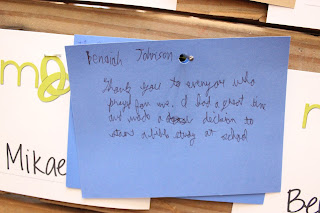 Benaiah Johnson
Thank you to everyone who
prayed for me. I had a great time
and made a decision to
start a bible study at school
Mikae
Be